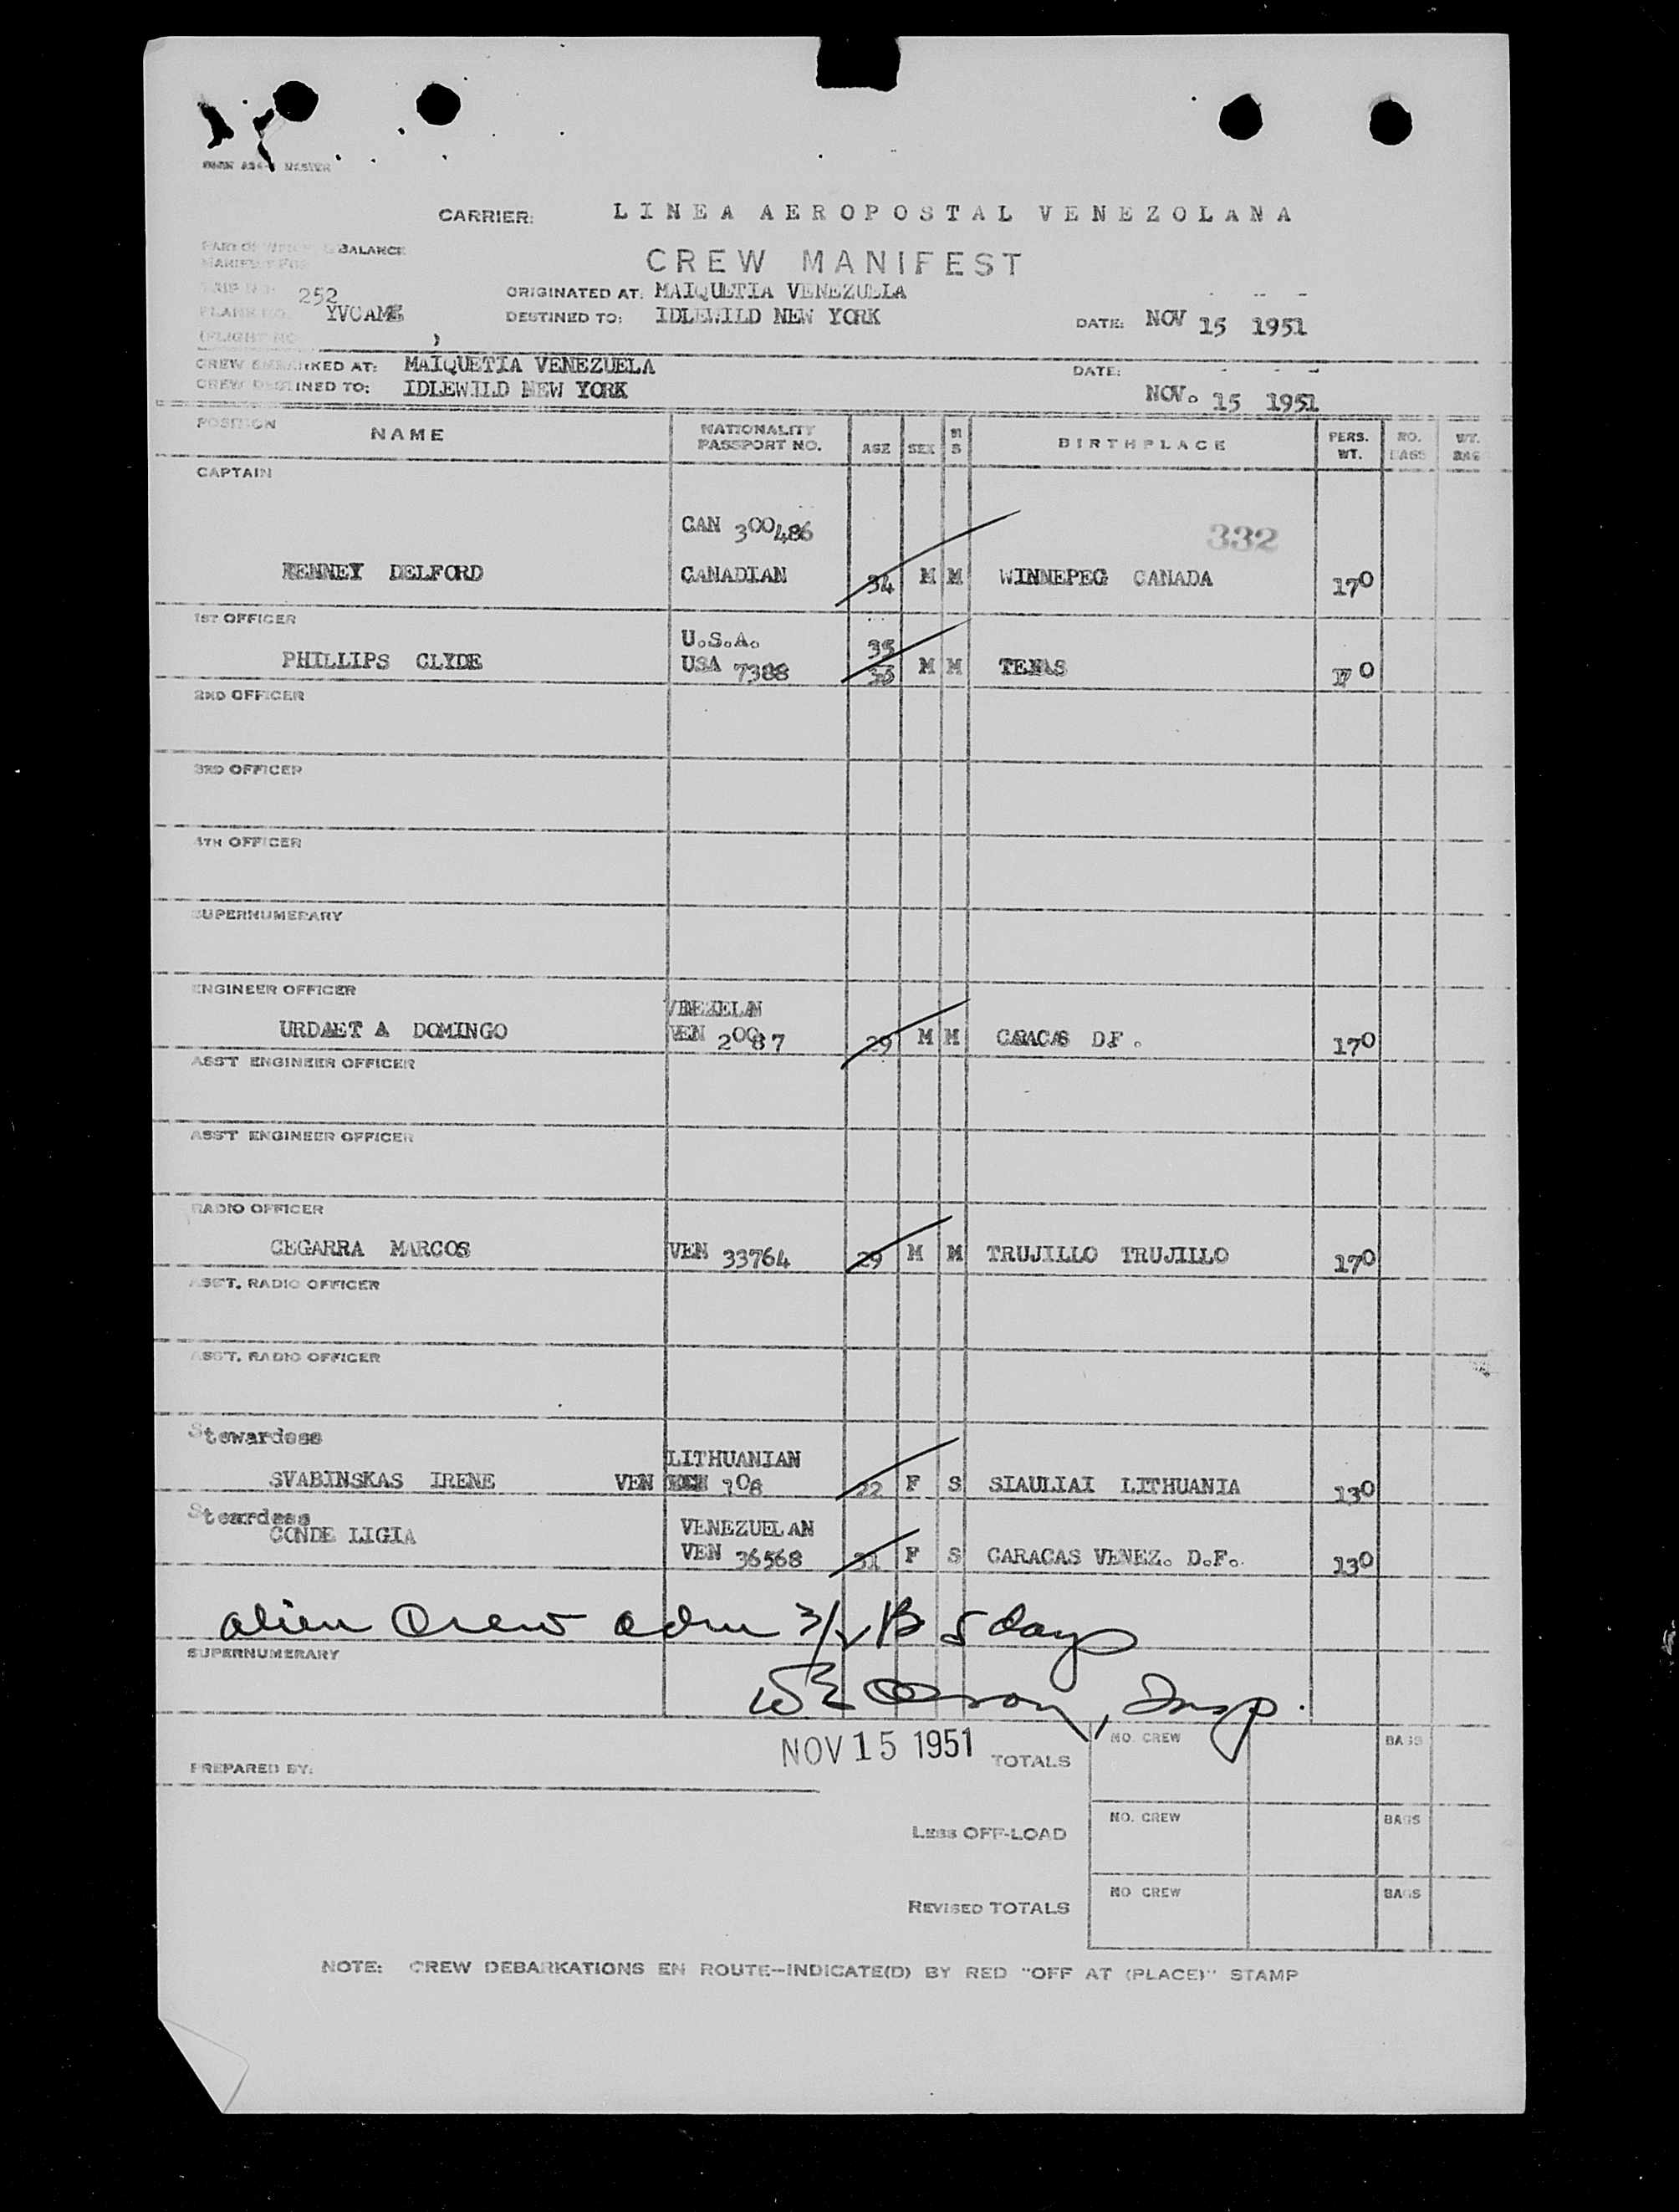 CARRIER: LINEA AEROPOSTAL VENEZOLANA
BALANCE
CREW MANIFEST
TRIP NO. 252 ORIGINATED AT: MAIQUETIA VENEZUELA
PLANE NO. DESTINED TO: IDLEWILD NEW YORK DATE: NOV 15 1951
CREW EMBARKED AT: MAIQUETIA VENEZUELA DATE:
CREW DESTINED TO: IDLEWILD NEW YORK NOV. 15 1951
POSITION NAME NATIONALITY PASSPORT NO. AGE SEX M S BIRTHPLACE PERS. WT. NO. BAGS WT. BAG
CAPTAIN
CAN 300486 332
KENNEY DELFORD CANADIAN 34 M M WINNEPEG CANADA 170
1ST OFFICER
U.S.A. 35
PHILLIPS CLYDE USA 7388 M M TEXAS 170
2ND OFFICER
3RD OFFICER
4TH OFFICER
SUPERNUMERARY
ENGINEER OFFICER
URDAET A DOMINGO VEN 20087 29 M M CARACAS D.F. 170
ASST ENGINEER OFFICER
ASST ENGINEER OFFICER
RADIO OFFICER
CEGARRA MARCOS VEN 33764 29 M M TRUJILLO TRUJILLO 170
ASST. RADIO OFFICER
ASST. RADIO OFFICER
Stewardess
LITHUANIAN
SVABINSKAS IRENE VEN 108 22 F S SIAULIAI LITHUANIA 130
Steardess
VENEZUELAN
CONDE LIGIA VEN 36568 21 F S CARACAS VENEZ. D.F. 130
alien Crew adm 3/ 5 days
SUPERNUMERARY
Insp.
NOV 15 1951 TOTALS NO. CREW BAGS
PREPARED BY:
LESS OFF-LOAD NO. CREW BAGS
REVISED TOTALS NO CREW BAGS
NOTE: CREW DEBARKATIONS EN ROUTE—INDICATE(D) BY RED "OFF AT (PLACE)" STAMP